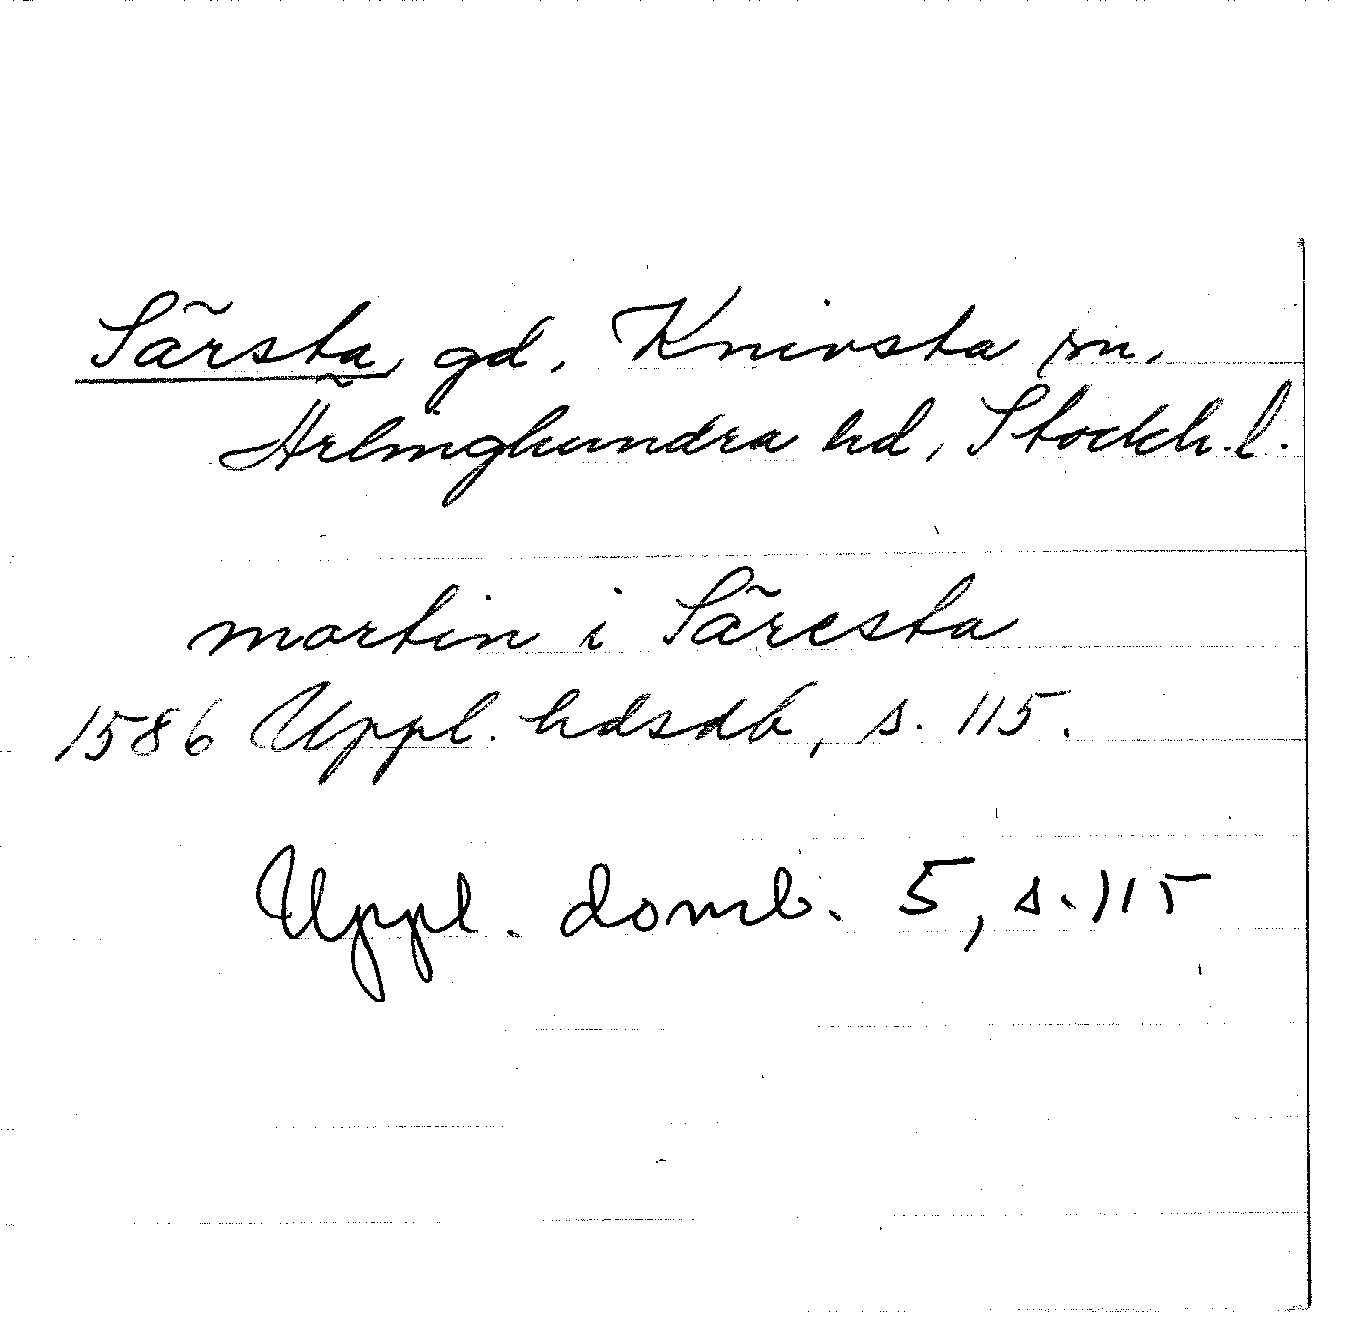 Särsta, gd, Knivsta sn.
Ärlinghundra hd, Stockh. l.
mortin i Säresta
1586 Uppl. hdsdb, s. 115.
Uppl. domb. 5, s. 115